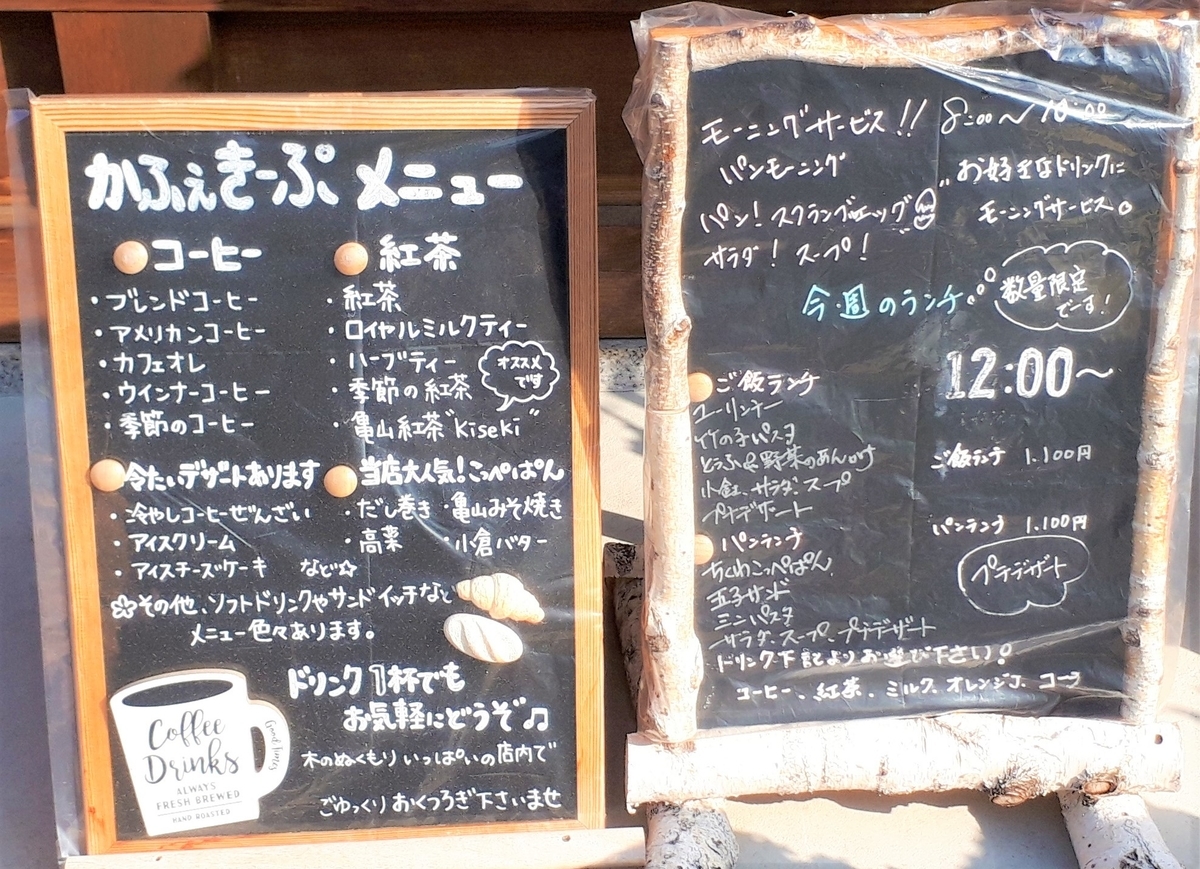 かふぇきーぷ メニュー
コーヒー
・ブレンドコーヒー
・アメリカンコーヒー
・カフェオレ
・ウインナーコーヒー
・季節のコーヒー
紅茶
・紅茶
・ロイヤルミルクティー
・ハーブティー
・季節の紅茶
・亀山紅茶"Kiseki"
オススメ
です
冷たいデザートあります
・冷やしコーヒーぜんざい
・アイスクリーム
・アイスチーズケーキ など☆
当店大人気!こっぺぱん
・だし巻き ・亀山みそ焼き
・高菜 ・小倉バター
その他、ソフトドリンクやサンドイッチなど
メニュー色々あります。
ドリンク1杯でも
お気軽にどうぞ♫
木のぬくもりいっぱいの店内で
ごゆっくりおくつろぎ下さいませ
Coffee
Drinks
ALWAYS
FRESH BREWED
HAND ROASTED
Good Times
モーニングサービス!! 8:00〜10:00
パンモーニング
パン!スクランブルエッグ
サラダ!スープ!
お好きなドリンクに
モーニングサービス。
今週のランチ
数量限定
でーす!
12:00〜
ご飯ランチ
ユーリンチー
竹の子パスタ
とうふと野菜のあんかけ
小鉢、サラダ、スープ
プチデザート
ご飯ランチ 1.100円
パンランチ
ちくわこっぺぱん
玉子サンド
ミニパスタ
サラダ、スープ、プチデザート
パンランチ 1.100円
プチデザート
ドリンク下記よりお選び下さい!
コーヒー、紅茶、ミルク、オレンジJ、コーラ